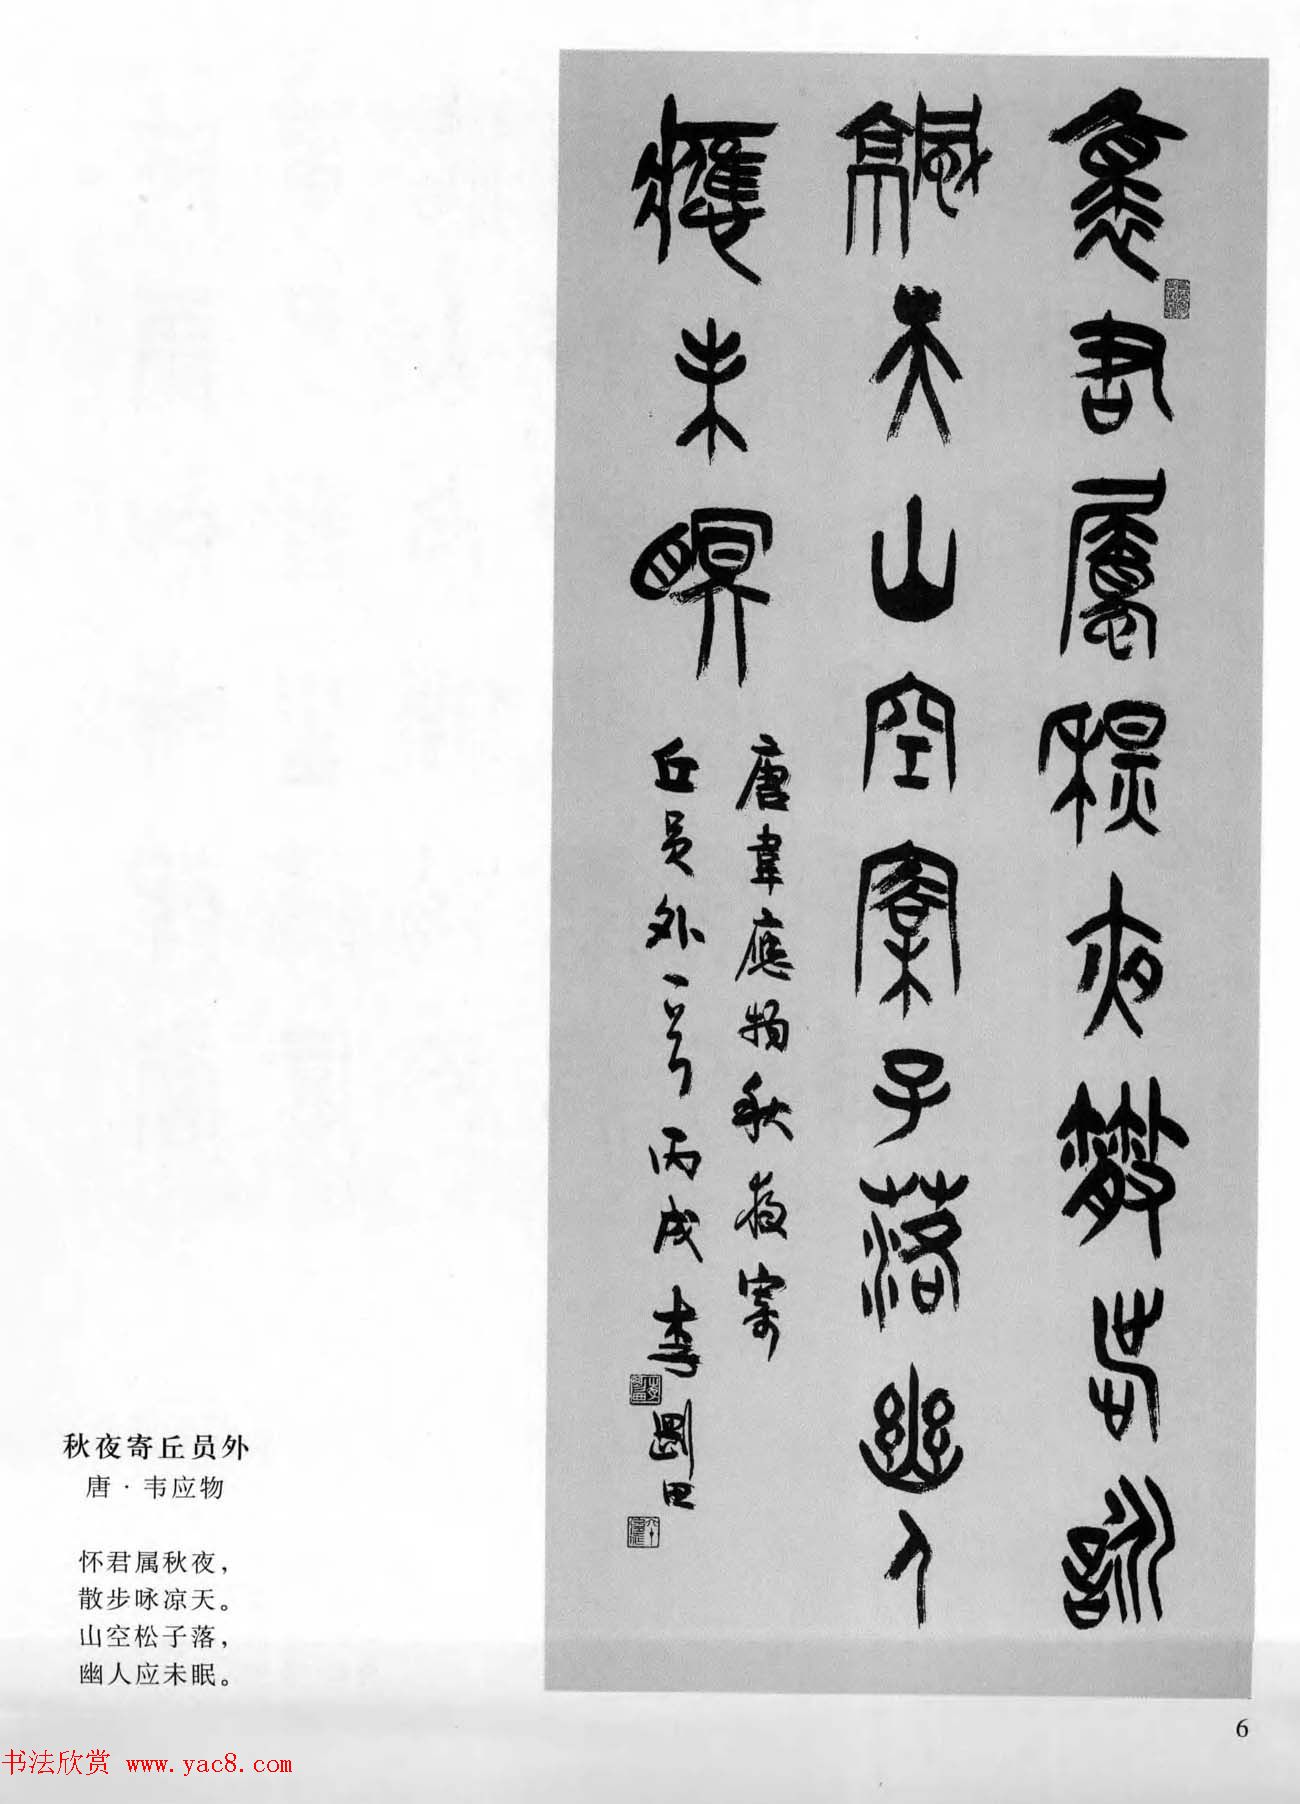 褱君屬秋夜散步詠
涼天山空松子落幽人
應未眠
唐韋應物秋夜寄
丘員外一首丙戌李剛田
秋夜寄丘员外
唐·韦应物
怀君属秋夜，
散步咏凉天。
山空松子落，
幽人应未眠。
6
书法欣赏 www.yac8.com